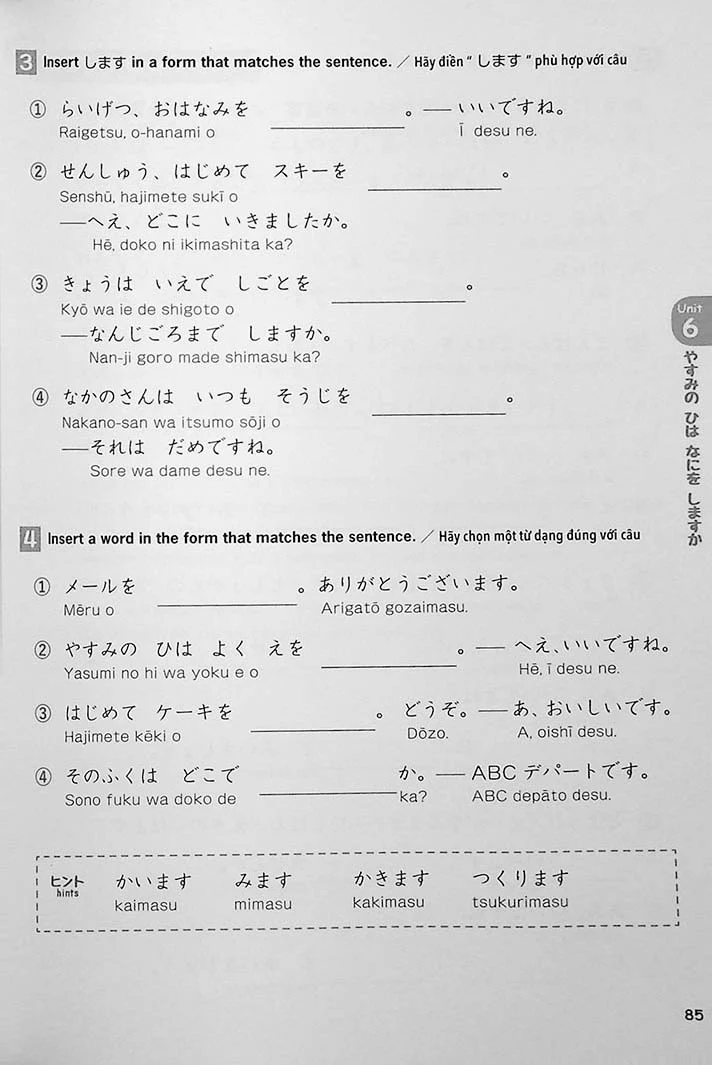 3 Insert します in a form that matches the sentence. ／ Hãy điền “ します ” phù hợp với câu
① らいげつ、おはなみを ＿＿＿＿＿＿。── いいですね。
Raigetsu, o-hanami o Ī desu ne.
② せんしゅう、はじめて スキーを ＿＿＿＿＿＿。
Senshū, hajimete sukī o
──へえ、どこに いきましたか。
Hē, doko ni ikimashita ka?
③ きょうは いえで しごとを ＿＿＿＿＿＿。
Kyō wa ie de shigoto o
──なんじごろまで しますか。
Nan-ji goro made shimasu ka?
④ なかのさんは いつも そうじを ＿＿＿＿＿＿。
Nakano-san wa itsumo sōji o
──それは だめですね。
Sore wa dame desu ne.
4 Insert a word in the form that matches the sentence. ／ Hãy chọn một từ dạng đúng với câu
① メールを ＿＿＿＿＿＿。ありがとうございます。
Mēru o Arigatō gozaimasu.
② やすみの ひは よく えを ＿＿＿＿＿＿。── へえ、いいですね。
Yasumi no hi wa yoku e o Hē, ī desu ne.
③ はじめて ケーキを ＿＿＿＿＿＿。 どうぞ。── あ、おいしいです。
Hajimete kēki o Dōzo. A, oishī desu.
④ そのふくは どこで ＿＿＿＿＿＿か。── ABC デパートです。
Sono fuku wa doko de ka? ABC depāto desu.
ヒント かいます みます かきます つくります
hints kaimasu mimasu kakimasu tsukurimasu
Unit
6
やすみの ひは なにを しますか
85